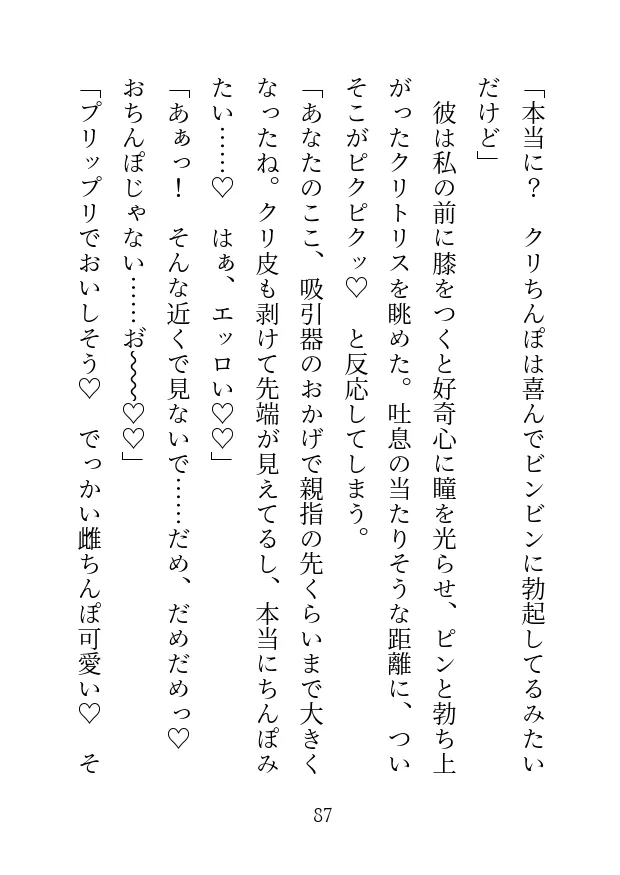 「本当に？　クリちんぽは喜んでビンビンに勃起してるみたい
だけど」
　彼は私の前に膝をつくと好奇心に瞳を光らせ、ピンと勃ち上
がったクリトリスを眺めた。吐息の当たりそうな距離に、つい
そこがピクピクッ♡　と反応してしまう。
「あなたのここ、吸引器のおかげで親指の先くらいまで大きく
なったね。クリ皮も剥けて先端が見えてるし、本当にちんぽみ
たい……♡　はぁ、エッロい♡♡」
「あぁっ！　そんな近くで見ないで……だめ、だめだめっ♡
おちんぽじゃない……お゛〜〜〜♡♡」
「プリップリでおいしそう♡　でっかい雌ちんぽ可愛い♡　そ
87